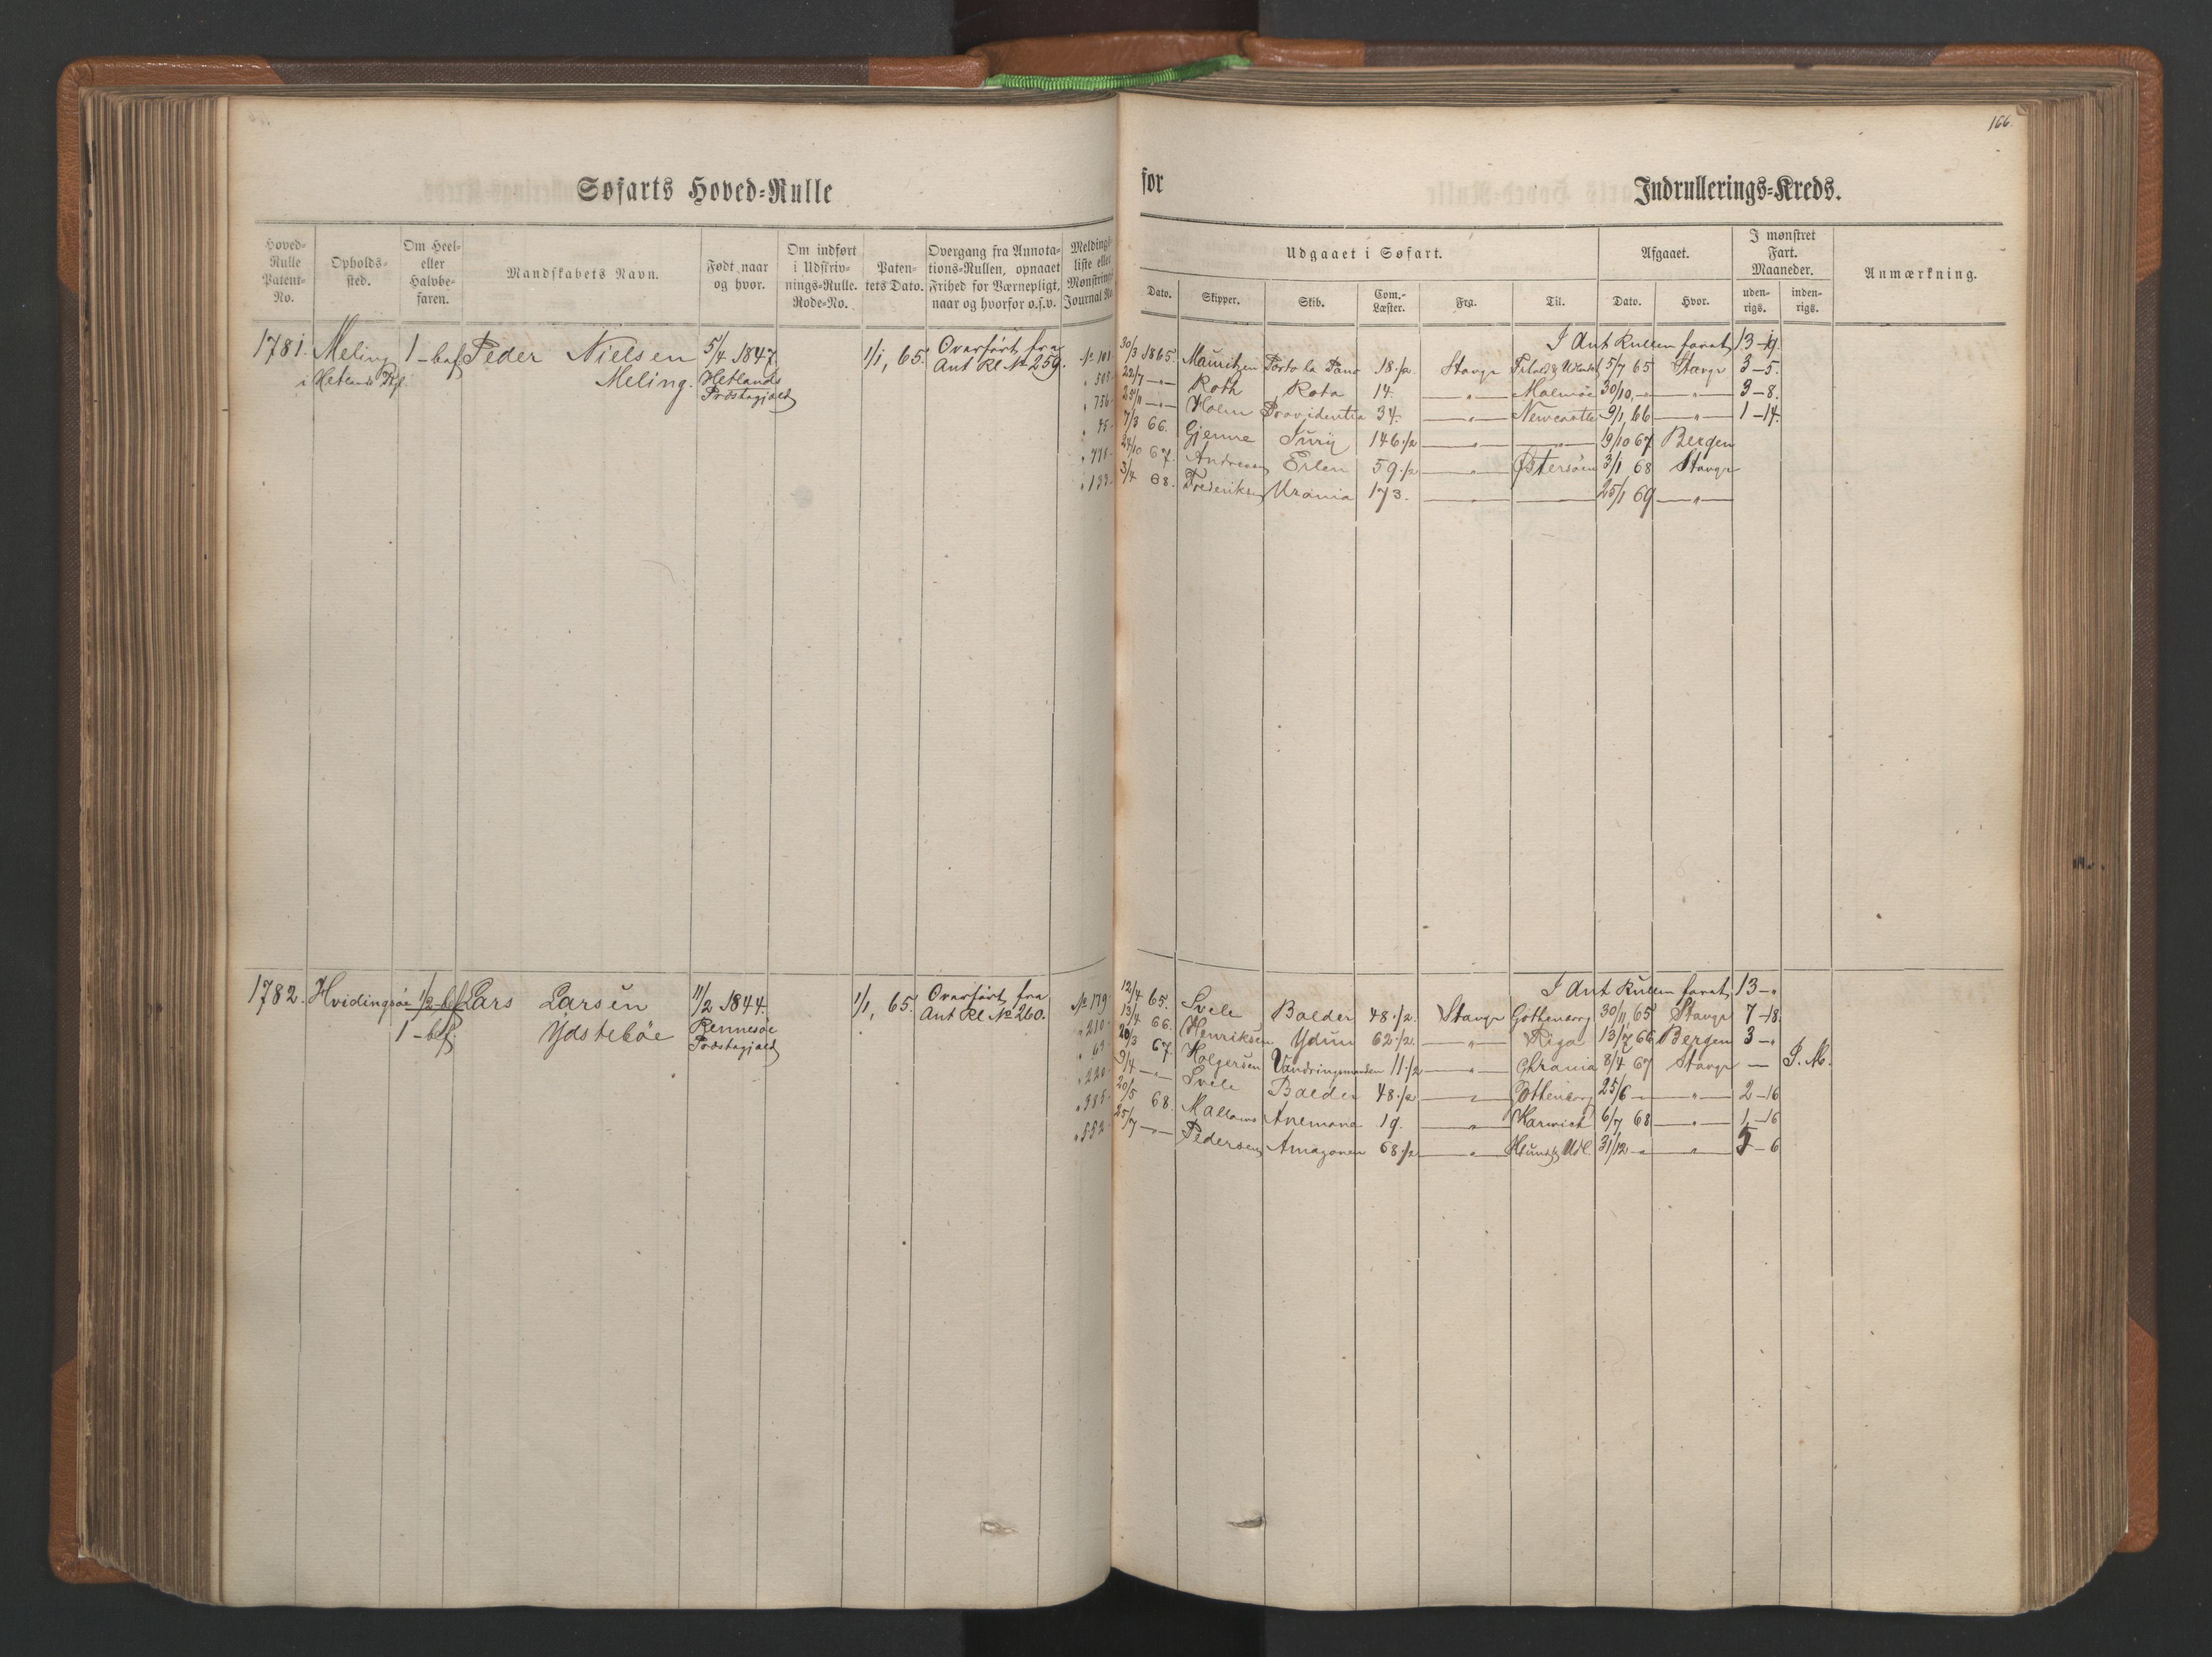 166.
Søfarts Hoved-Rulle
for Indrullerings-Kreds.
Hoved-Rulle Patent-No.
Opholds-sted.
Om Heel- eller Halvbe-faren.
Mandskabets Navn.
Født naar og hvor.
Om indført i Udskriv-nings-Rulle. Rode-No.
Paten-tets Dato.
Overgang fra Annota-tions-Rullen, opnaaet Frihed for Værnepligt, naar og hvorfor o.s.v.
Meldings-liste eller Mønstrings Journal No.
Udgaaet i Søfart.
Dato. Skipper. Skib. Com.-Læster. Fra. Til.
Afgaaet.
Dato. Hvor.
I mønstret Fart. Maaneder.
uden-rigs. inden-rigs.
Anmærkning.
1781. Meling 1-bef Peder Nielsen 5/4 1847 1/1, 65. Overført fra
i Hetlands Pgl. Meling. Hetlands Ant Rl No 259.
Præstegjæld
I Ant Rullen faret 13-
No 101 30/3 1865 Mauritzen 18 1/2 Stavgr 5/7 65 Stavgr 3-5.
" 505 22/7 —"— Roth Rota 14. —"— Malmöe 30/10, —"— —"— 3-8.
" 756 25/11 —"— Holm Providentia 34. —"— Newcastle 9/1, 66 —"— 1-14.
" 75 7/3 66. Gjemre Juriÿ 146 1/2 —"— —"— 19/10 67 Bergen
24/10 67. Andreasen Erlen 59 1/2 —"— Östersöen 3/1 68 Stavgr
" 133 3/4 68. Frederiksen Urania 173. —"— 25/1 69 —"—
1782. Hvidingsöe 1/2-bef Lars Larsen 11/2 1844. 1/1, 65. Overført fra
1-bef. Ydsteböe Rennesöe Ant Rl No 260.
Præstegjæld
I Ant Rullen faret 13-"
No 179 12/4 65. Svele Balder 48 1/2 Stavgr Gottenborg 30/11 65 Stavgr 7-18.
" 210 13/4 66. Henriksen Ydun 62 1/2 —"— Riga 13/7 66 Bergen 3-"
" 69 20/3 67. Holgersen Vandringsmanden 11 1/2 —"— Chrania 8/4 67 Stavgr — I. M.
" 220 9/4 —"— Svele Balder 48 1/2 —"— Gottenborg 25/6 —"— —"— 2-16
" 385 20/5 68. Anemone 19. —"— Harwich 6/7 68 —"— 1-16
" 552 25/7 —"— Pedersen Amazonen 68 1/2 —"— Udl. 31/12 —"— —"— 5-6